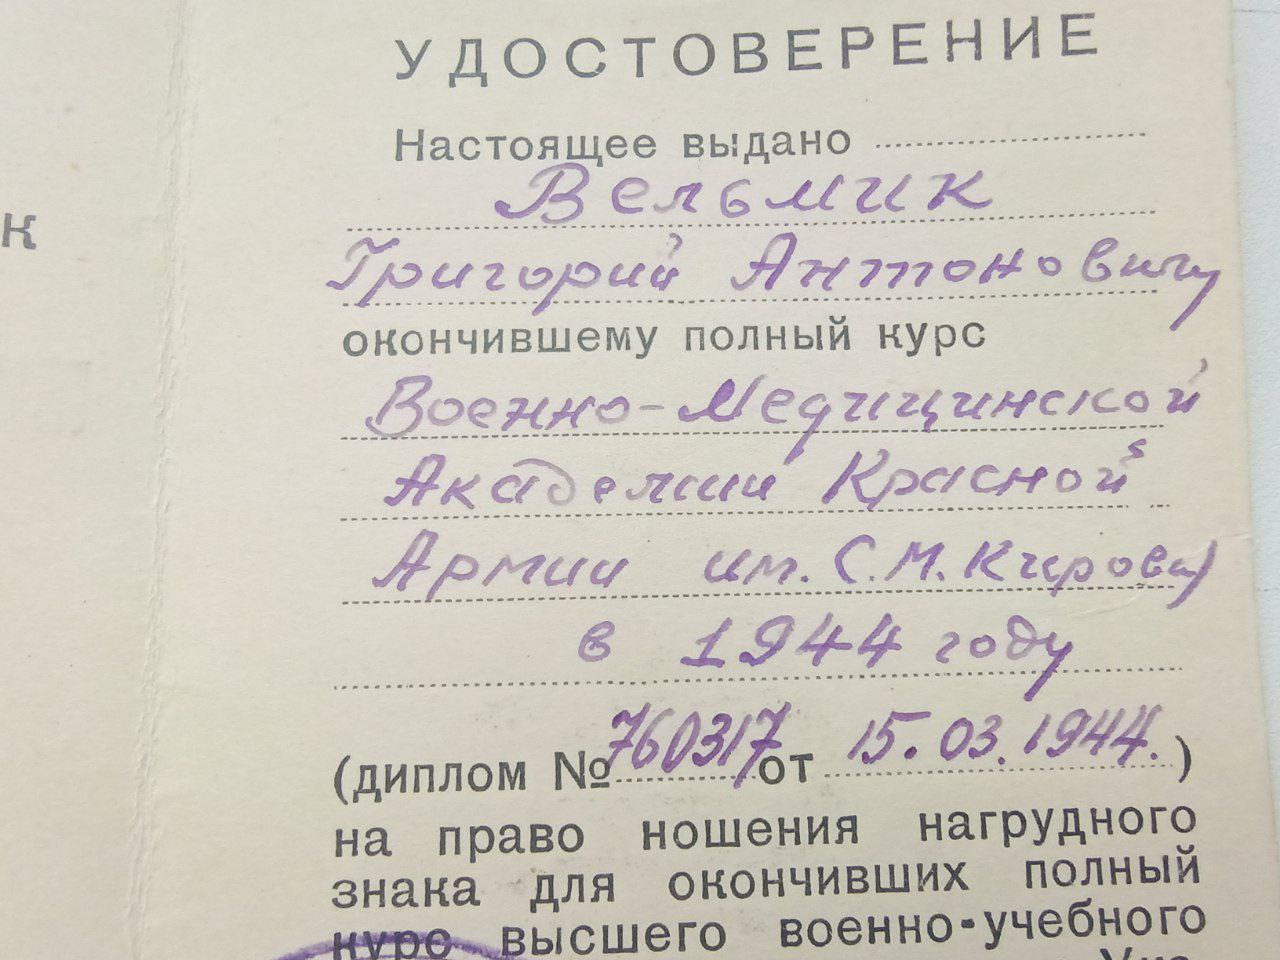 К
УДОСТОВЕРЕНИЕ
Настоящее выдано
Вельмик
Григорий Антоновичу
окончившему полный курс
Военно-Медицинской
Академии Красной
Армии им. С.М. Кирова
в 1944 году
(диплом № 760317 от 15.03.1944.)
на право ношения нагрудного
знака для окончивших полный
курс высшего военно-учебного